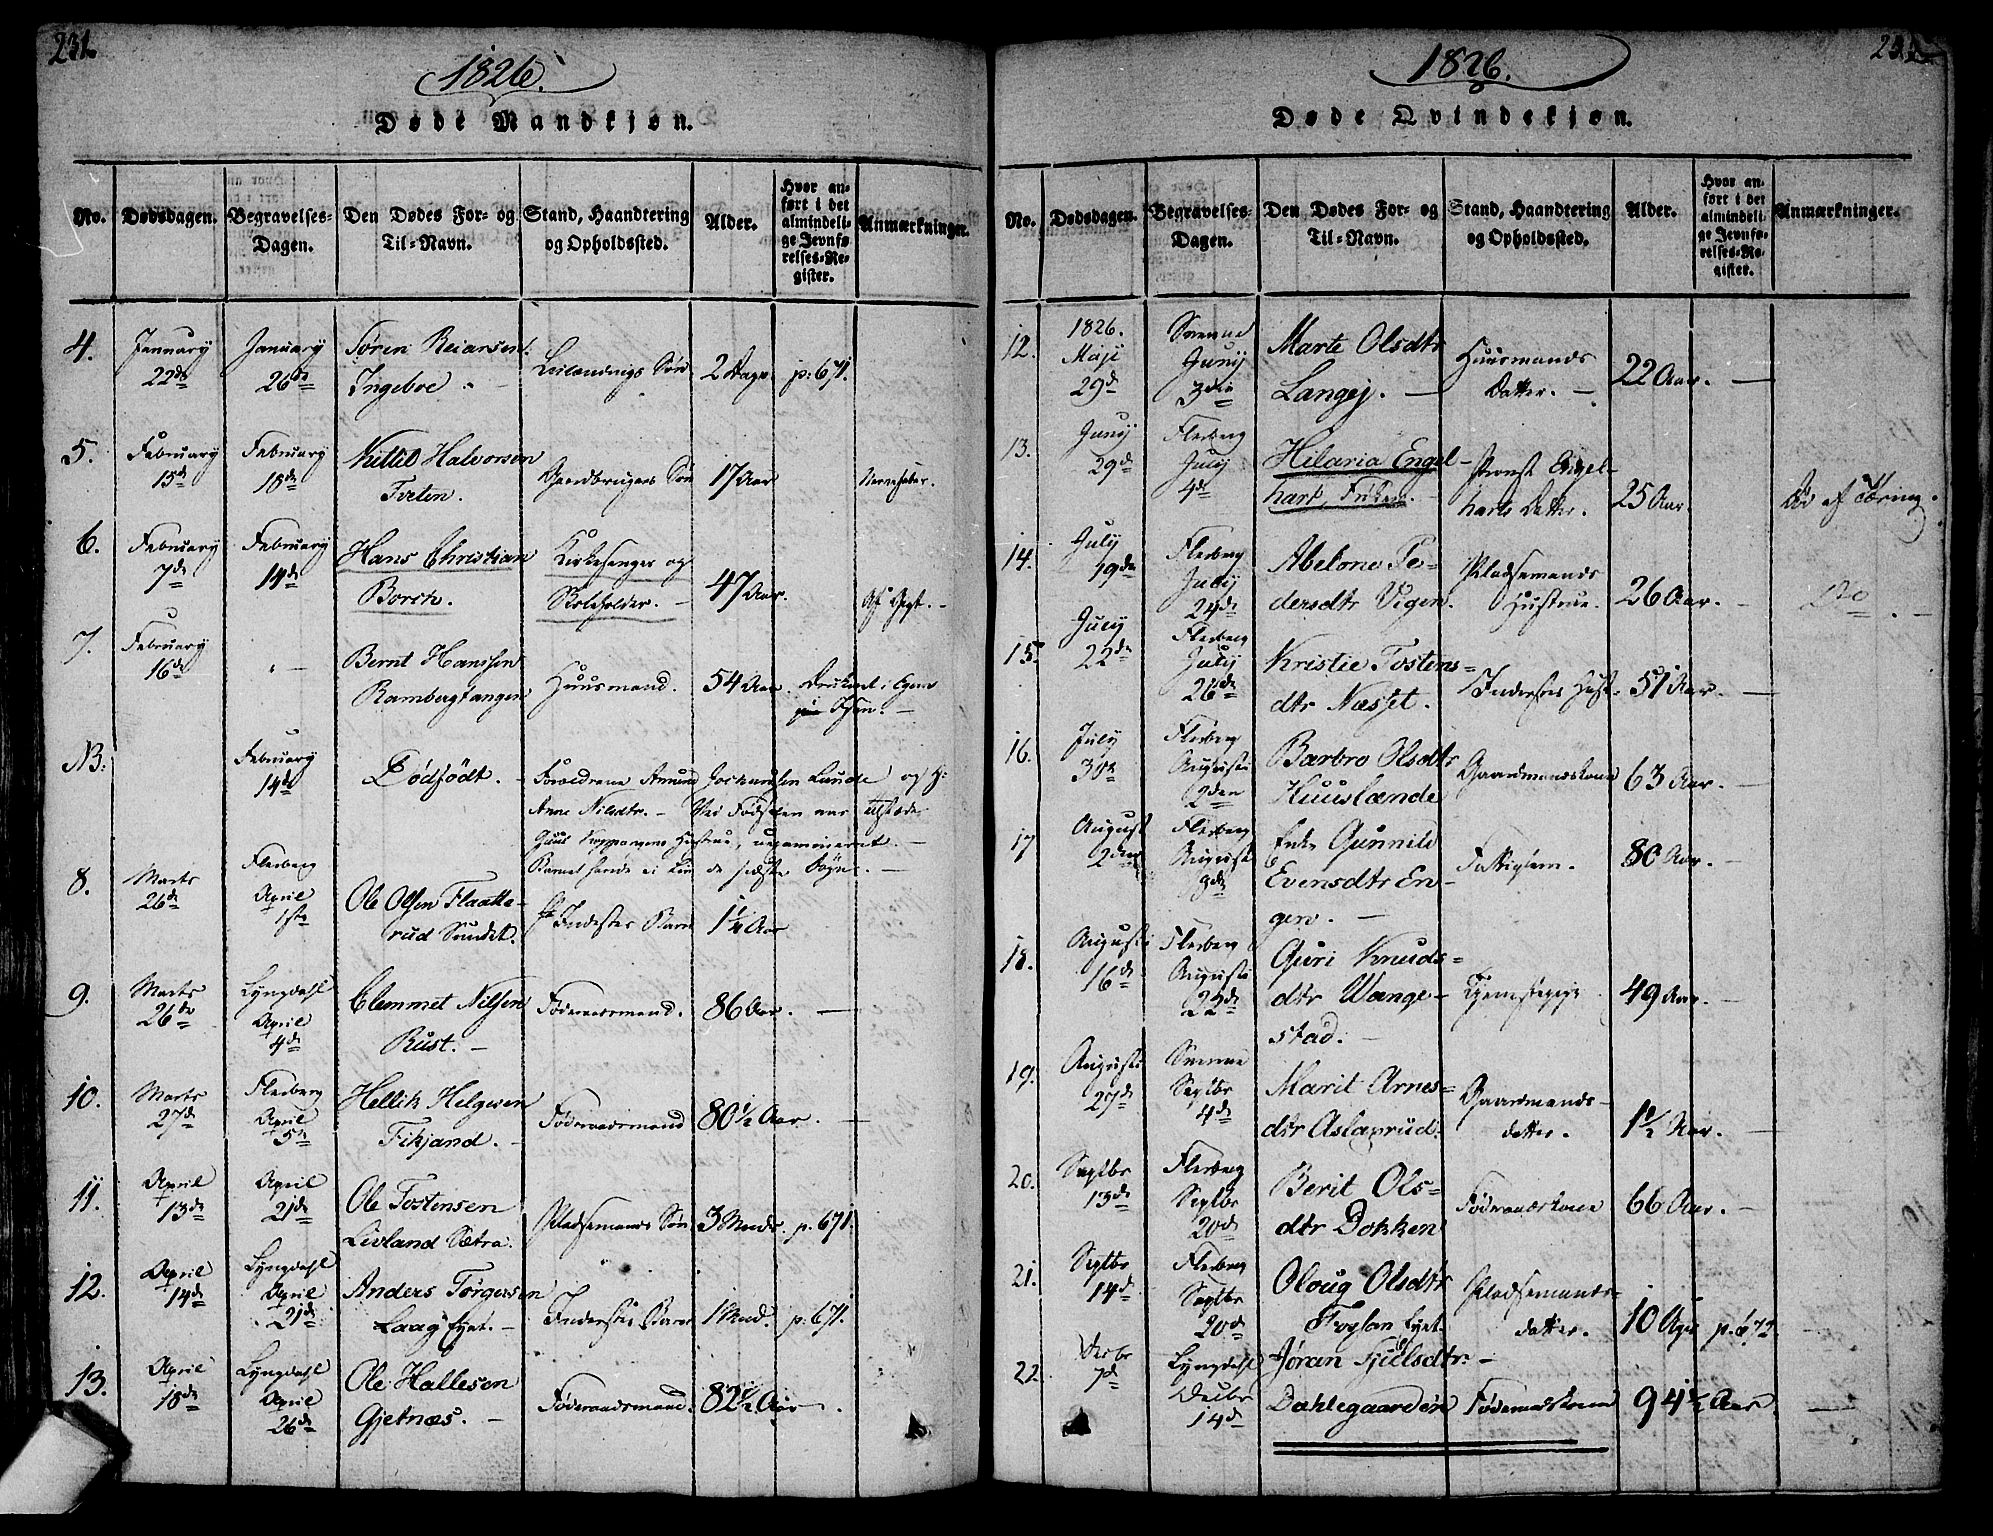 231.
1826.
Døde Mandkjøn.
No.
Dødsdagen.
Begravelses-
Dagen.
Den Dødes For- og
Til-Navn.
Stand, Haandtering
og Opholdssted.
Alder.
Hvor an-
ført i det
almindeli-
ge Jevnfø-
relses-Re-
gister.
Anmærkninger.
4.
January
22de
January
26de
Søren Reiarsen
Ingeboe
Leilændings Søn
2 Dage
p: 671.
5.
February
15de
February
18de
Kittil Halvorsen
Tveten.
Gaardbrugers Søn
17 Aar
Nervefeber.
6.
February
7de
February
14de
Hans Christian
Borch.
Kirkesanger og
Skoleholder.
47 Aar.
Af Gigt.
7.
February
16de
Bernt Hanssen
Rambergtangen
Huusmand.
54 Aar
Druknet i Egern
Isen.
NB:
February
14de
Dødfødt.
Forældrene Amund
Lunde og H:
Anne Nilsdtr. Ved Fødselen var tilstæde
Hustrue, uexamineret.
Barnet havde ei Liv de sidste Døgn.
8.
Marts
26de
Flesberg
April
1ste
Ole Olsen Flaatte-
rud Sundet.
Inderstes Barn
1¼ Aar
9.
Marts
26de
Lyngdahl
April
4de
Clemmet Nilsen
Rust.
Føderaadsmand.
86 Aar.
10.
Marts
27de
Flesberg
April
5te
Hellik Helgesen
Fikjand.
Føderaadsmand
80½ Aar.
11.
April
13de
April
21de
Ole Tostensen
Livland Sætra.
Pladsemands Søn
3 Maadr.
p. 671.
12.
April
14de
Lyngdahl
April
21de
Anders Torgersen
Laag Eyet.
Inderstes Barn
1 Maad.
p: 671.
13.
April
18de
Lyngdahl
April
26de
Ole Hallesen
Gjetnæs.
Føderaadsmand.
82½ Aar
1826.
Døde Qvindekjøn.
No.
Dødsdagen.
Begravelses-
Dagen.
Den Dødes For- og
Til-Navn.
Stand, Haandtering
og Opholdssted.
Alder.
Hvor an-
ført i det
almindeli-
ge Jevnfø-
relses-Re-
gister.
Anmærkninger.
12.
1826.
Maji
29de
Svenne
Juny
3die
Marte Olsdtr
Langej.
Huusmands
Datter.
22 Aar.
13.
Juny
29de
Flesberg
July
4de
Hilaria Engel-
hart, Frøken.
Provst Engel-
harts Datter.
25 Aar
Død af Tæring.
14.
July
19de
Flesberg
July
24de
Abelone Pe-
dersdtr Vigen.
Pladsemands
Hustrue.
26 Aar.
Do
15.
July
22de
Flesberg
July
26de
Kristie Tostens-
dtr Næsset.
Inderstes Hust.
51 Aar.
16.
July
30te
Flesberg
Augusti
2den
Barbro Olsdtr
Huuslænde
Gaardmandskone
63 Aar.
17
August
2den
Flesberg
Augusti
9de
Enke Gunnild
Evensdtr En-
gen.
Fattiglem.
80 Aar.
18.
Augusti
16de
Flesberg
Augusti
22de
Guri Knuds-
dtr Wange-
stad.
Tjenestepige
49 Aar.
19.
Augusti
27de
Svenne
Septbr
4de
Marit Arnes-
dtr Aslaxrud.
Gaardmands-
datter.
1½ Aar.
20.
Septbr
13de
Flesberg
Septbr
20de
Berit Ols-
dtr Dokken
Føderaadskone
66 Aar.
21.
Septbr
14de
Flesberg
Septbr
20de
Oloug Olsdtr
Eyet
Pladsemands-
datter.
10 Uger
p. 672.
22
Decbr
7de
Lyngdahl
Decbr
14de
Jøran Fjeelsdtr:
Dahlegaarden
Føderaadskone
94½ Aar.